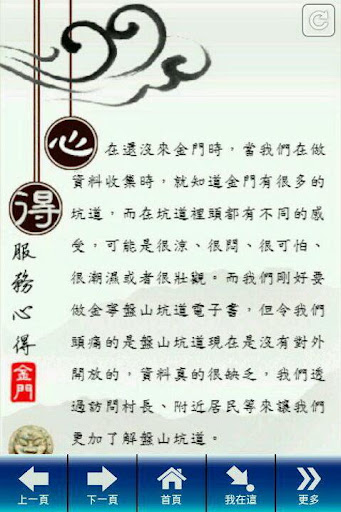 心得
服務心得
金門
在還沒來金門時，當我們在做
資料收集時，就知道金門有很多的
坑道，而在坑道裡頭都有不同的感
受，可能是很涼、很悶、很可怕、
很潮濕或者很壯觀。而我們剛好要
做金寧盤山坑道電子書，但令我們
頭痛的是盤山坑道現在是沒有對外
開放的，資料真的很缺乏，我們透
過訪問村長、附近居民等來讓我們
更加了解盤山坑道。
上一頁
下一頁
首頁
我在這
更多